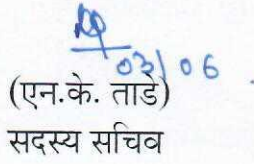 03/06
(एन.के. ताडे)
सदस्य सचिव